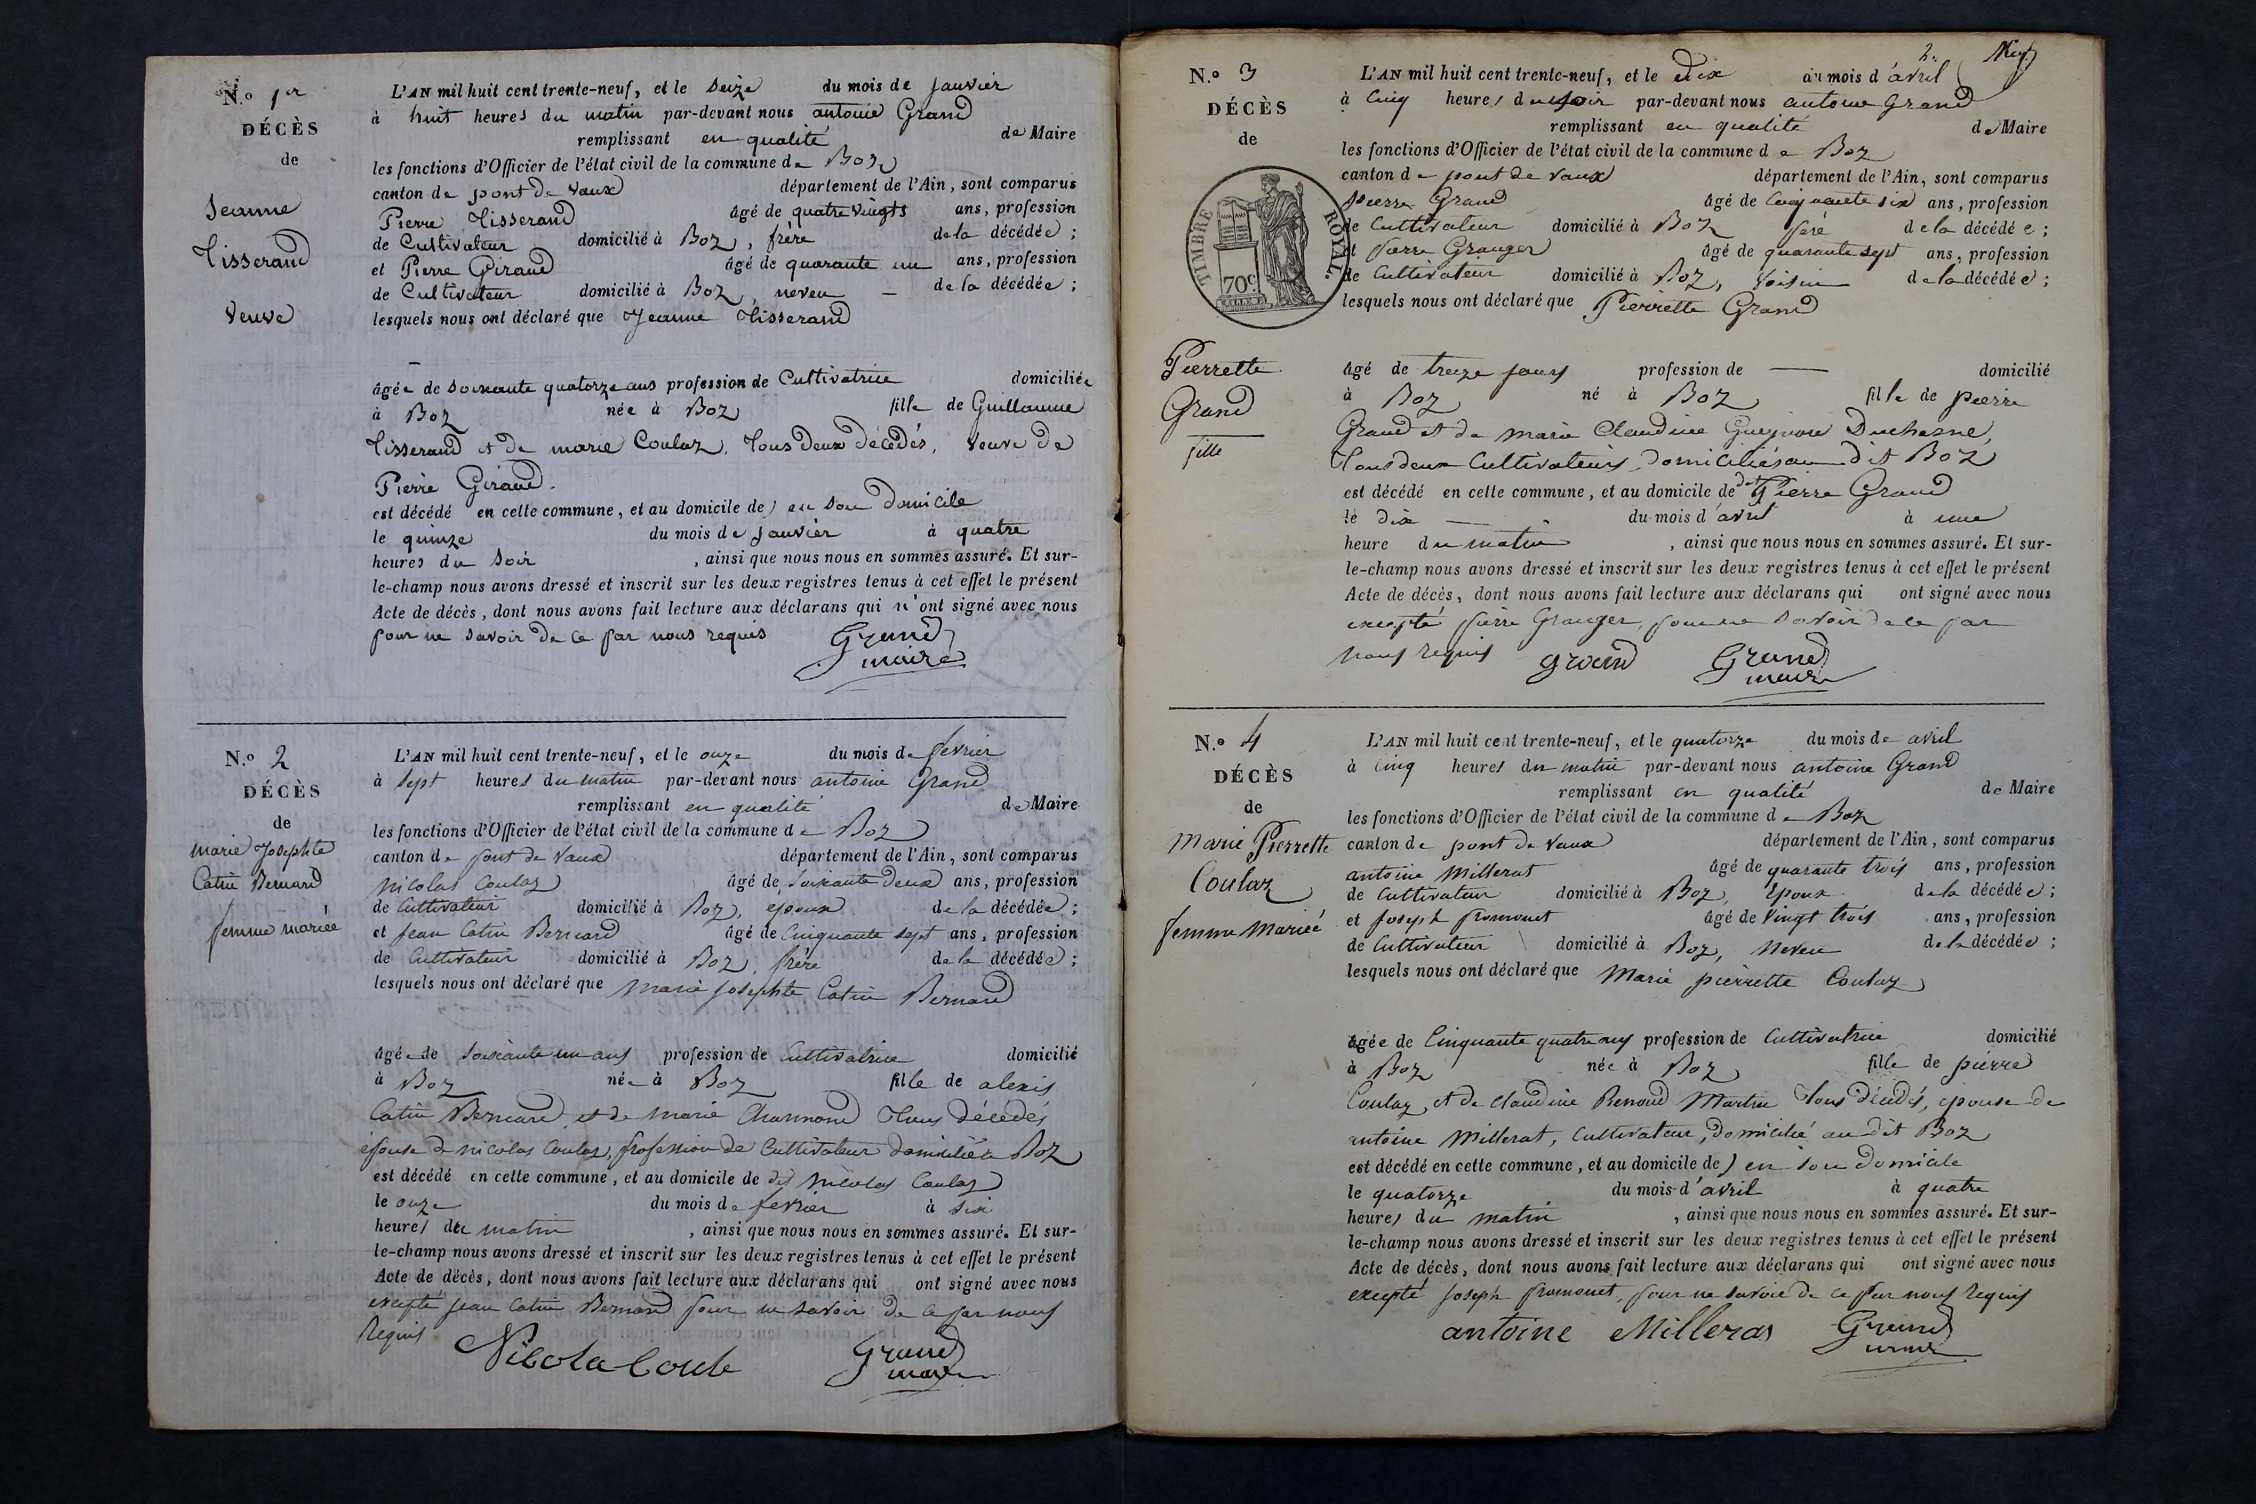 N.o 1er
DÉCÈS
de
Jeanne
Tisserand
Veuve
L'AN mil huit cent trente-neuf, et le seize du mois de janvier
à huit heures du matin par-devant nous antoine Grand
remplissant en qualité de Maire
les fonctions d'Officier de l'état civil de la commune de Boz
canton de pont de Vaux département de l'Ain, sont comparus
Pierre Tisserand âgé de quatre vingts ans, profession
de Cultivateur domicilié à Boz, frère de la décédée;
et Pierre Giraud âgé de quarante un ans, profession
de Cultivateur domicilié à Boz, neveu — de la décédée;
lesquels nous ont déclaré que Jeanne Tisserand
âgée de soixante quatorze ans profession de Cultivatrice domiciliée
à Boz née à Boz fille de Guillaume
Tisserand et de marie Coulaz, tous deux décédés, veuve de
Pierre Giraud.
est décédé en cette commune, et au domicile de) en son domicile
le quinze du mois de janvier à quatre
heures du soir, ainsi que nous nous en sommes assuré. Et sur-
le-champ nous avons dressé et inscrit sur les deux registres tenus à cet effet le présent
Acte de décès, dont nous avons fait lecture aux déclarans qui n'ont signé avec nous
pour ne savoir de ce par nous requis Grand
maire
N.o 2
DÉCÈS
de
marie Josephte
Catin Bernard
femme mariée
L'AN mil huit cent trente-neuf, et le onze du mois de fevrier
à sept heures du matin par-devant nous antoine Grand
remplissant en qualité de Maire
les fonctions d'Officier de l'état civil de la commune de Boz
canton de pont de Vaux département de l'Ain, sont comparus
Nicolas Coulaz âgé de soixante deux ans, profession
de Cultivateur domicilié à Boz, époux de la décédée;
et jean Catin Bernard âgé de Cinquante sept ans, profession
de Cultivateur domicilié à Boz, frère de la décédée;
lesquels nous ont déclaré que Marie josephte Catin Bernard
âgée de soixante un ans profession de Cultivatrice domicilié
à Boz née à Boz fille de alexis
Catin Bernard, et de Marie Charmond tous décédés
épouse de nicolas Coulaz, profession de Cultivateur domicilié à Boz
est décédé en cette commune, et au domicile de dit Nicolas Coulaz
le onze du mois de fevrier à six
heures du matin, ainsi que nous nous en sommes assuré. Et sur-
le-champ nous avons dressé et inscrit sur les deux registres tenus à cet effet le présent
Acte de décès, dont nous avons fait lecture aux déclarans qui ont signé avec nous
excepté jean Catin Bernard pour ne savoir de ce par nous
Requis. Nicola Coule Grand
maire
2.
N.o 3
DÉCÈS
de
TIMBRE ROYAL.
70c.
Pierrette
Grand
fille
L'AN mil huit cent trente-neuf, et le dix du mois d'avril
à Cinq heures du soir par-devant nous antoine Grand
remplissant en qualité de Maire
les fonctions d'Officier de l'état civil de la commune de Boz
canton de pont de Vaux département de l'Ain, sont comparus
pierre Grand âgé de Cinquante six ans, profession
de Cultivateur domicilié à Boz père de la décédée;
et pierre Granger âgé de quarante sept ans, profession
de Cultivateur domicilié à Boz, Voisin de la décédée;
lesquels nous ont déclaré que Pierrette Grand
âgé de treize jours profession de — domicilié
à Boz né à Boz fille de pierre
Grand et de marie Claudine Duchesne,
tous deux Cultivateurs, domiciliés au dit Boz
est décédé en cette commune, et au domicile de dt Pierre Grand
le dix — du mois d'avril à une
heure du matin, ainsi que nous nous en sommes assuré. Et sur-
le-champ nous avons dressé et inscrit sur les deux registres tenus à cet effet le présent
Acte de décès, dont nous avons fait lecture aux déclarans qui ont signé avec nous
excepté pierre Granger, pour ne savoir de ce par
nous requis grand Grand
maire
N.o 4
DÉCÈS
de
Marie Pierrette
Coulaz
femme Mariée
L'AN mil huit cent trente-neuf, et le quatorze du mois de avril
à Cinq heures du matin par-devant nous antoine Grand
remplissant en qualité de Maire
les fonctions d'Officier de l'état civil de la commune de Boz
canton de pont de Vaux département de l'Ain, sont comparus
antoine Millerat âgé de quarante trois ans, profession
de Cultivateur domicilié à Boz, Epoux de la décédée;
et joseph promonet âgé de Vingt trois ans, profession
de Cultivateur domicilié à Boz, Neveu de la décédée;
lesquels nous ont déclaré que Marie pierrette Coulaz
âgée de Cinquante quatre ans profession de Cultivatrice domicilié
à Boz née à Boz fille de pierre
Coulaz et de Claudine Renoud Martin tous décédés, épouse de
antoine Millerat, Cultivateur, domicilié au dit Boz
est décédé en cette commune, et au domicile de) en son domicile
le quatorze du mois d'avril à quatre
heures du matin, ainsi que nous nous en sommes assuré. Et sur-
le-champ nous avons dressé et inscrit sur les deux registres tenus à cet effet le présent
Acte de décès, dont nous avons fait lecture aux déclarans qui ont signé avec nous
excepté joseph promonet, pour ne savoir de ce par nous requis
antoine Milleras Grand
maire